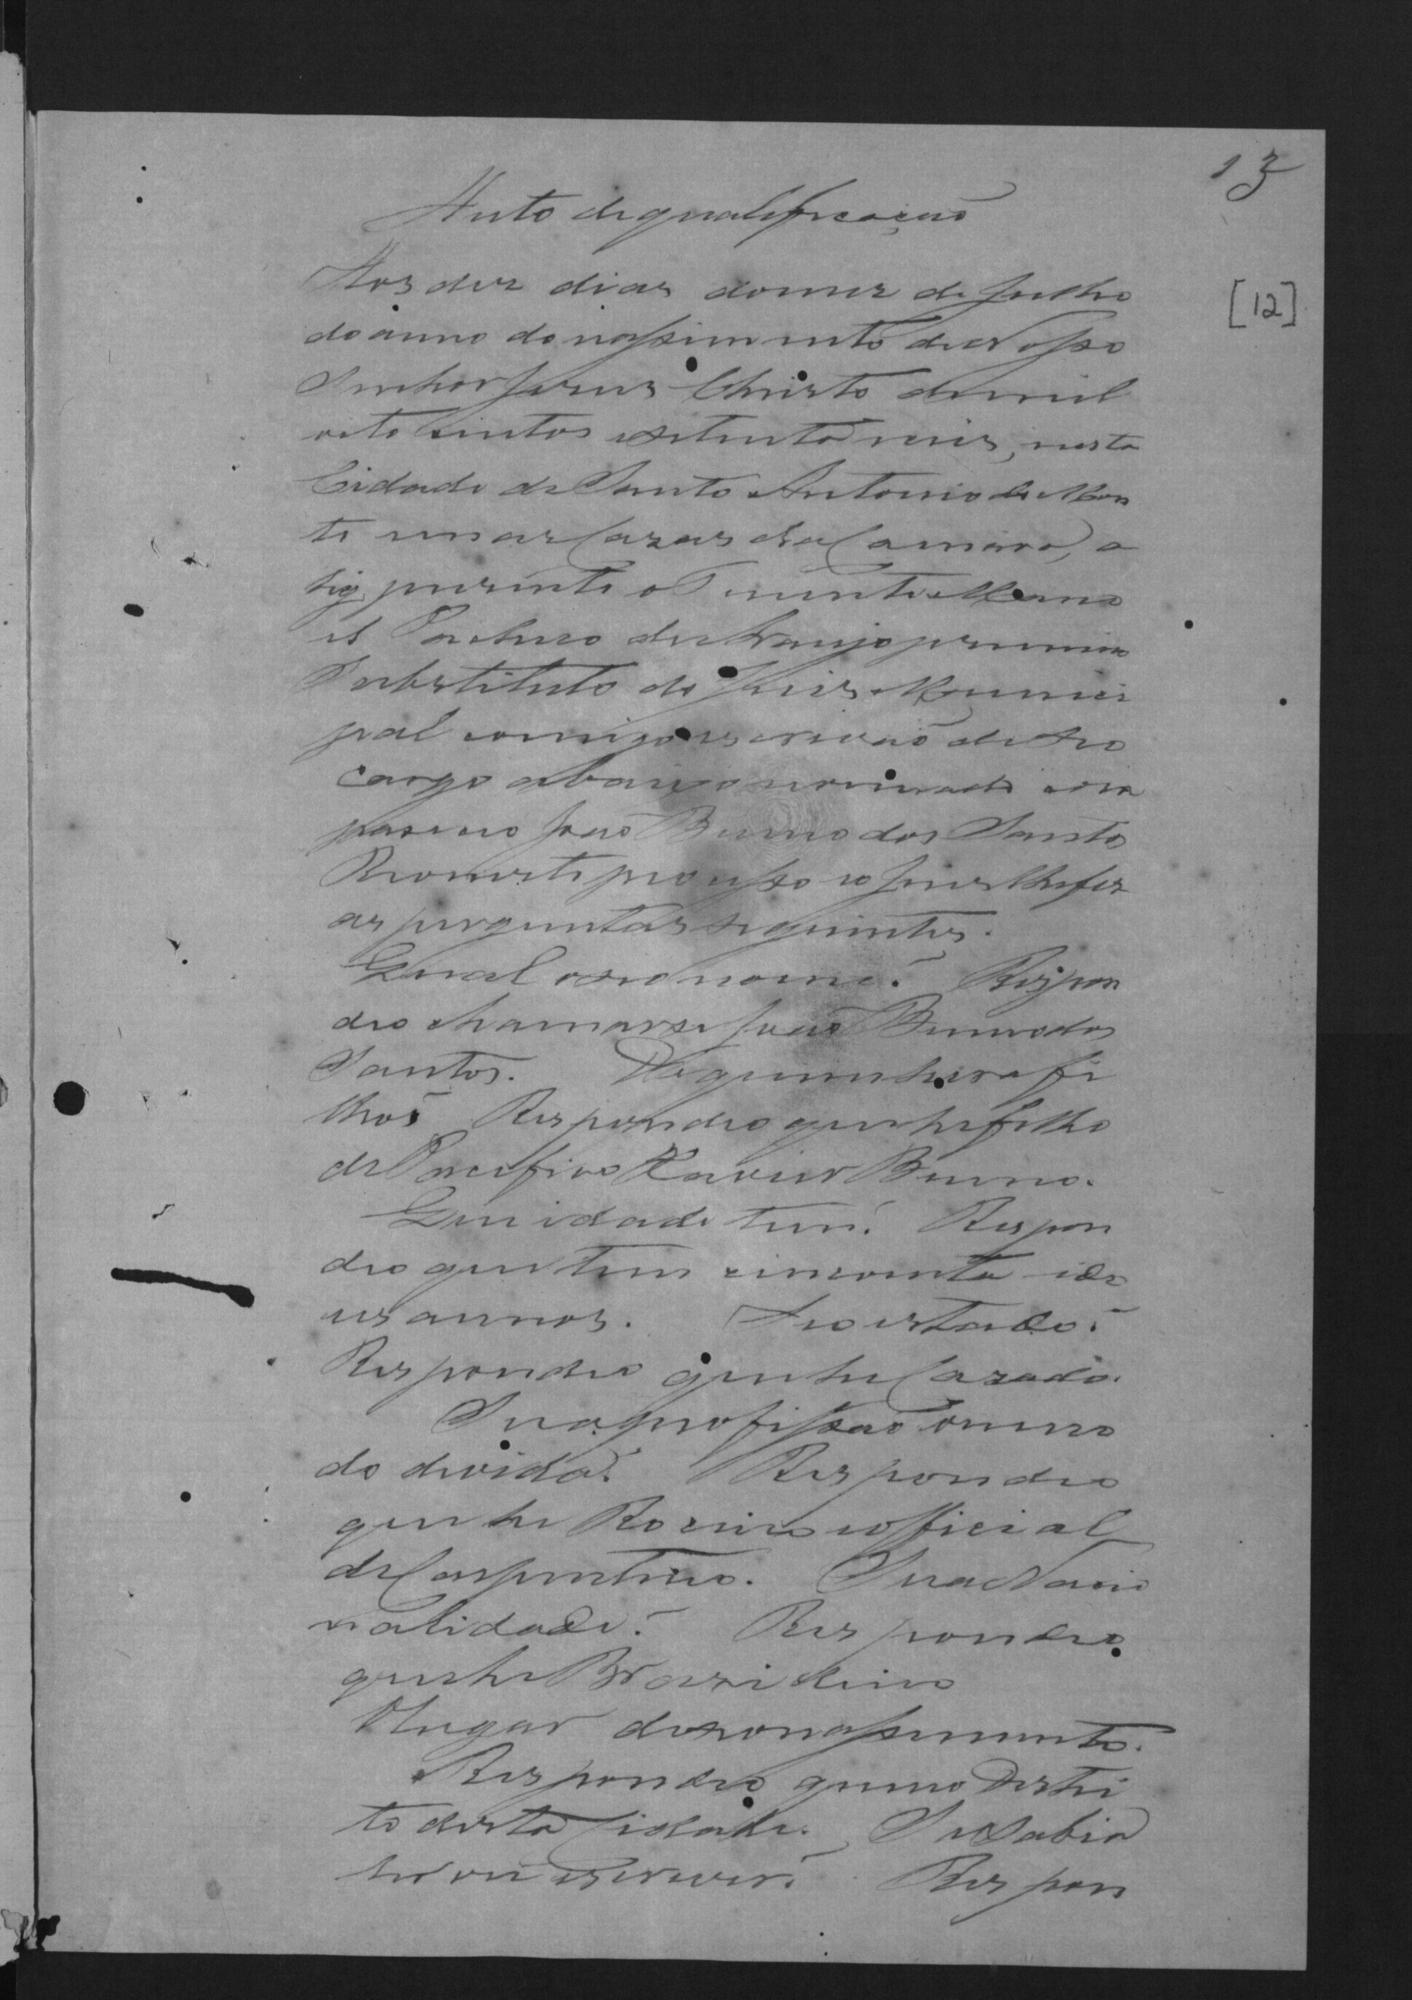 13
[12]
Auto de qualificação
Aos dez dias do mez de Julho
do anno do nassimento de Nosso
Senhor Jezus Christo de mil
oito sentos e setenta e seis, nesta
Cidade de Santo Antonio do Mon
te em as Cazas da Camara, a
hi, prezente o Tenente Mano
el Pacheco de Araujo primeiro
Substituto do Juis Munici
pal comigo escrivão de seo
cargo abaixo nomiado com
pareceo João Bueno dos Santos
Reo neste processo e o Juis lhe fez
as perguntas seguintes.
Qual o seo nome? Respon
deo chamarse João Bueno dos
Santos. De quem hera fi
lho? Respondeo que he filho
de Pacifico Xavier Bueno.
Que idade tem? Respon
deo que tem sincoenta e do
us annos. Seo estado?
Respondeo que he Cazado.
Sua profissão ou meo
do de vida? Respondeo
que he Roceiro e official
de Carpinteiro. Sua Nacio
nalidade? Respondeo
que he Brazileiro
O lugar de seo nassimento.
Respondeo que no Destri
to desta Cidade. Se sabia
ler ou escrever? Respon